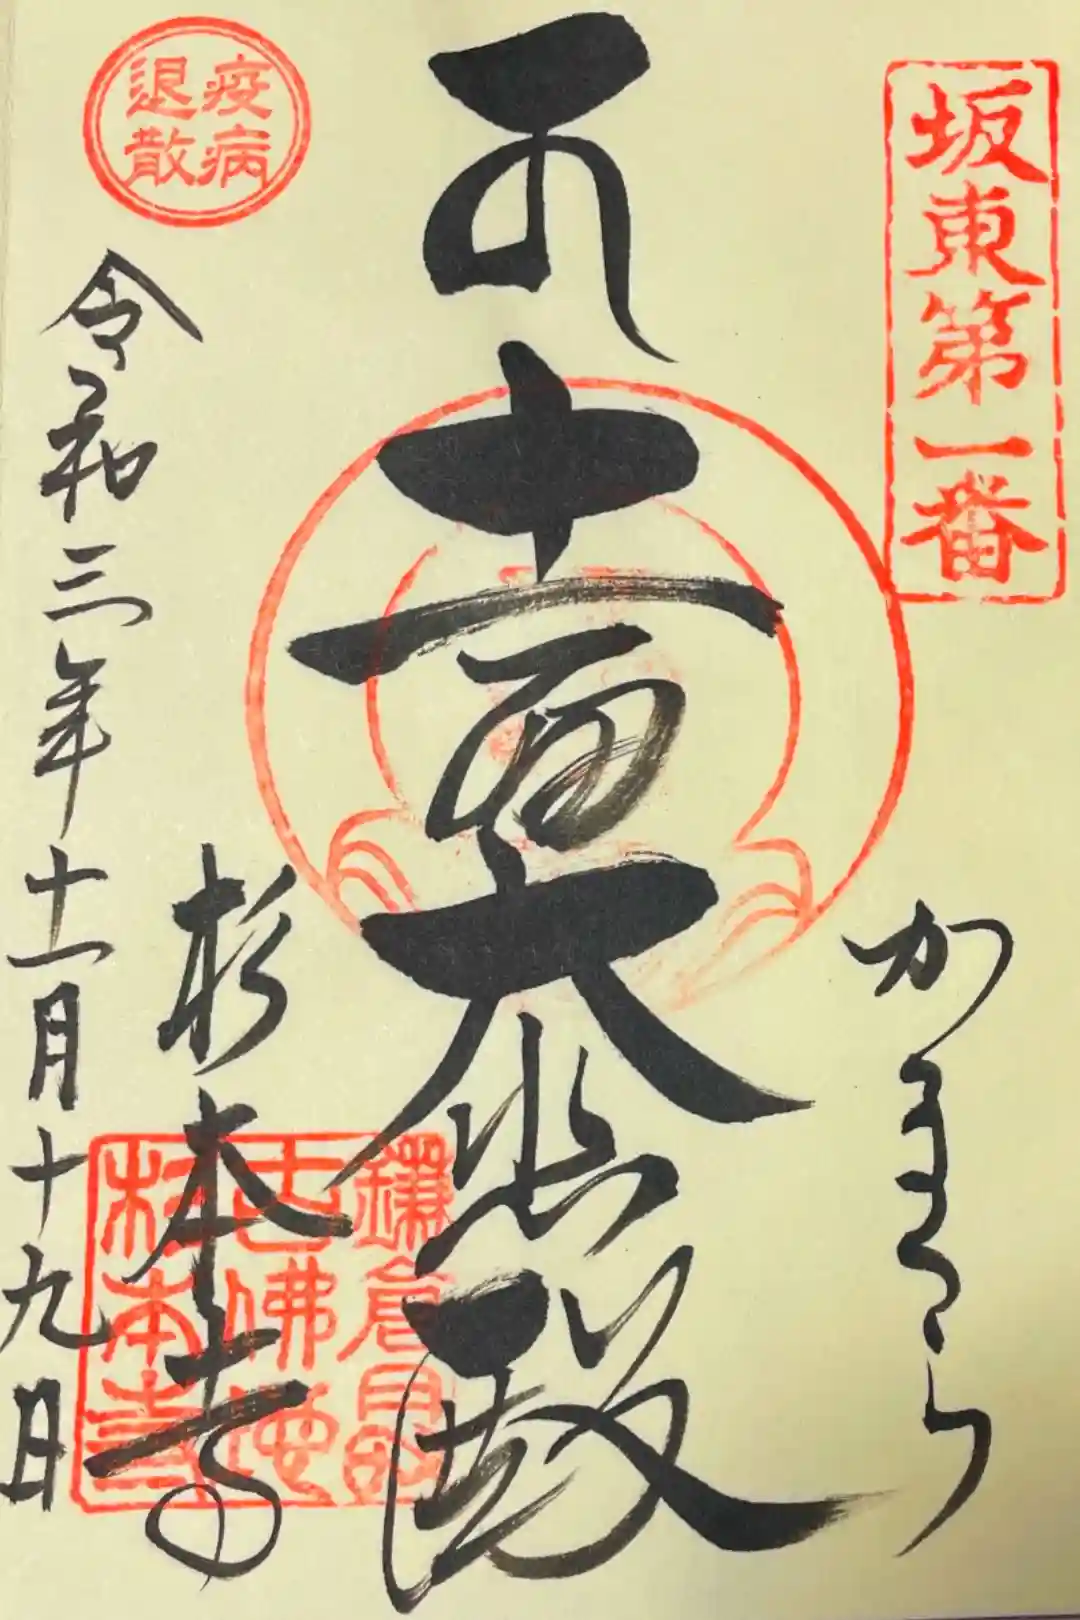 坂東第一番
かまくら
十一面大悲殿
疫病
退散
杉本寺
令和三年十一月十九日
鎌倉最
古佛地
杉本寺